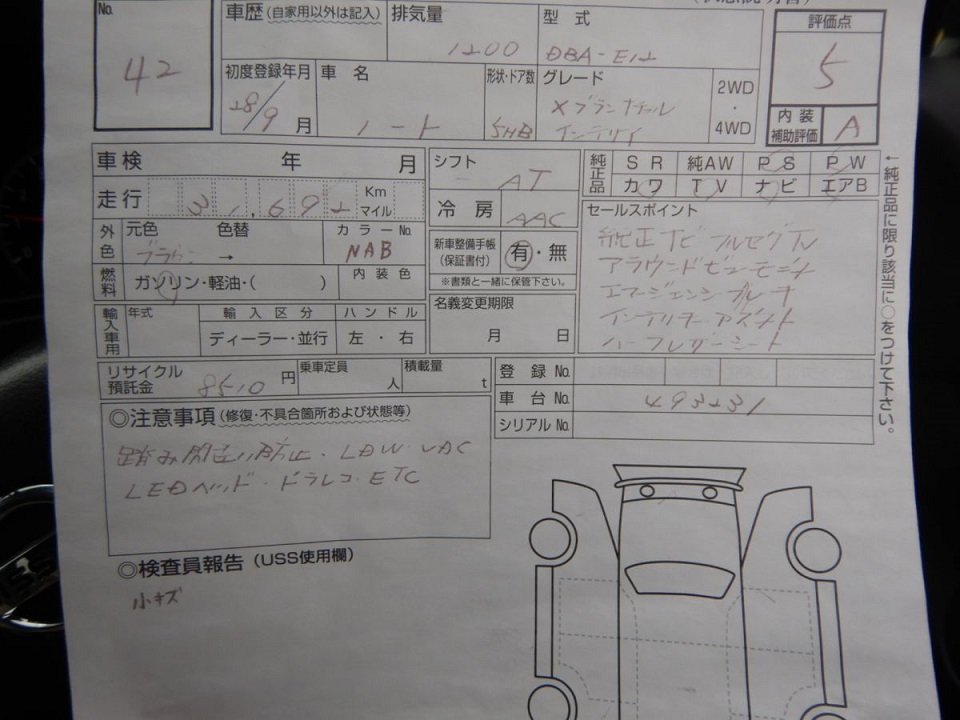 No.
42
車歴(自家用以外は記入)
排気量
1200
型式
DBA-E12
評価点
5
初度登録年月
28/9月
車名
ノート
形状・ドア数
5HB
グレード
Xブランナチュール
インテリア
2WD
・
4WD
内装
補助評価
A
車検 年 月
走行 31,692 Km
マイル
外色
元色 色替
ブラウン →
カラーNo.
NAB
燃料
ガソリン・軽油・( )
内装色
輸入車用
年式
輸入区分
ディーラー・並行
ハンドル
左・右
シフト
AT
冷房
AAC
新車整備手帳
(保証書付)
有・無
※書類と一緒に保管下さい。
名義変更期限
月 日
純正品
SR 純AW PS PW
カワ TV ナビ エアB
セールスポイント
純正ナビ フルセグTV
アラウンドビューモニター
エマージェンシーブレーキ
ハーフレザーシート
←純正品に限り該当に○をつけて下さい。
リサイクル
預託金
8510円
乗車定員
人
積載量
t
登録No.
車台No.
493231
シリアルNo.
◎注意事項(修復・不具合箇所および状態等)
踏み間違い防止・LDW・VDC
LEDヘッド・ドラレコ・ETC
◎検査員報告(USS使用欄)
小キズ